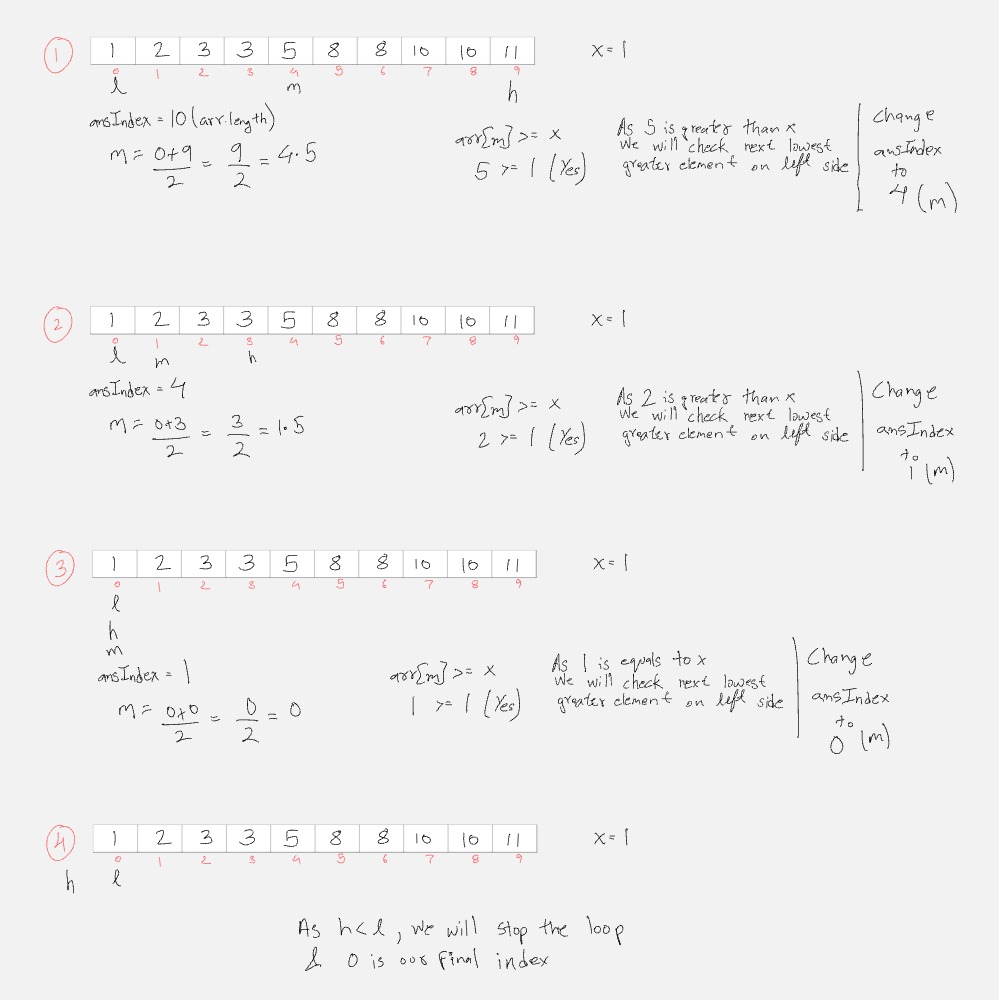 1
1 2 3 3 5 8 8 10 10 11
x = 1
0 1 2 3 4 5 6 7 8 9
l m h
ansIndex = 10 (arr.length)
m = 0+9/2 = 9/2 = 4.5
arr[m] >= x
5 >= 1 (Yes)
As 5 is greater than x
We will check next lowest
greater element on left side
Change
ansIndex
to
4 (m)
2
1 2 3 3 5 8 8 10 10 11
x = 1
0 1 2 3 4 5 6 7 8 9
l m h
ansIndex = 4
m = 0+3/2 = 3/2 = 1.5
arr[m] >= x
2 >= 1 (Yes)
As 2 is greater than x
We will check next lowest
greater element on left side
Change
ansIndex
to
1 (m)
3
1 2 3 3 5 8 8 10 10 11
x = 1
0 1 2 3 4 5 6 7 8 9
l
h
m
ansIndex = 1
m = 0+0/2 = 0/2 = 0
arr[m] >= x
1 >= 1 (Yes)
As 1 is equals to x
We will check next lowest
greater element on left side
Change
ansIndex
to
0 (m)
4
1 2 3 3 5 8 8 10 10 11
x = 1
0 1 2 3 4 5 6 7 8 9
h l
As h < l, we will stop the loop
& 0 is our final index